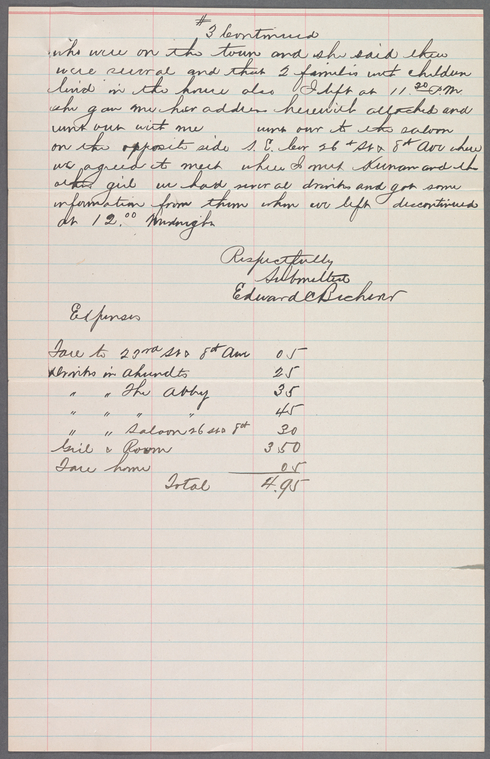 #3 Continued
who were on the town and she said there
were several and that 2 families with children
lived in the house also I left at 11 20 P.M
she gave me her address herewith attached and
went out with me went over to the saloon
on the opposite side S.E. Cor 26th St & 8th Ave where
we agreed to meet where I met Kunan and the
other girl we had several drinks and got some
information from them when we left discontinued
at 12.00 Midnight
Respectfully
Submitted
Edward C
Expenses
Fare to 23rd St & 8th Ave 05
Drinks in 25
" " The Abby 35
" " " " 45
" " Saloon 26 St & 8th 30
Girl & Room 3 50
Fare home 05
Total 4.95